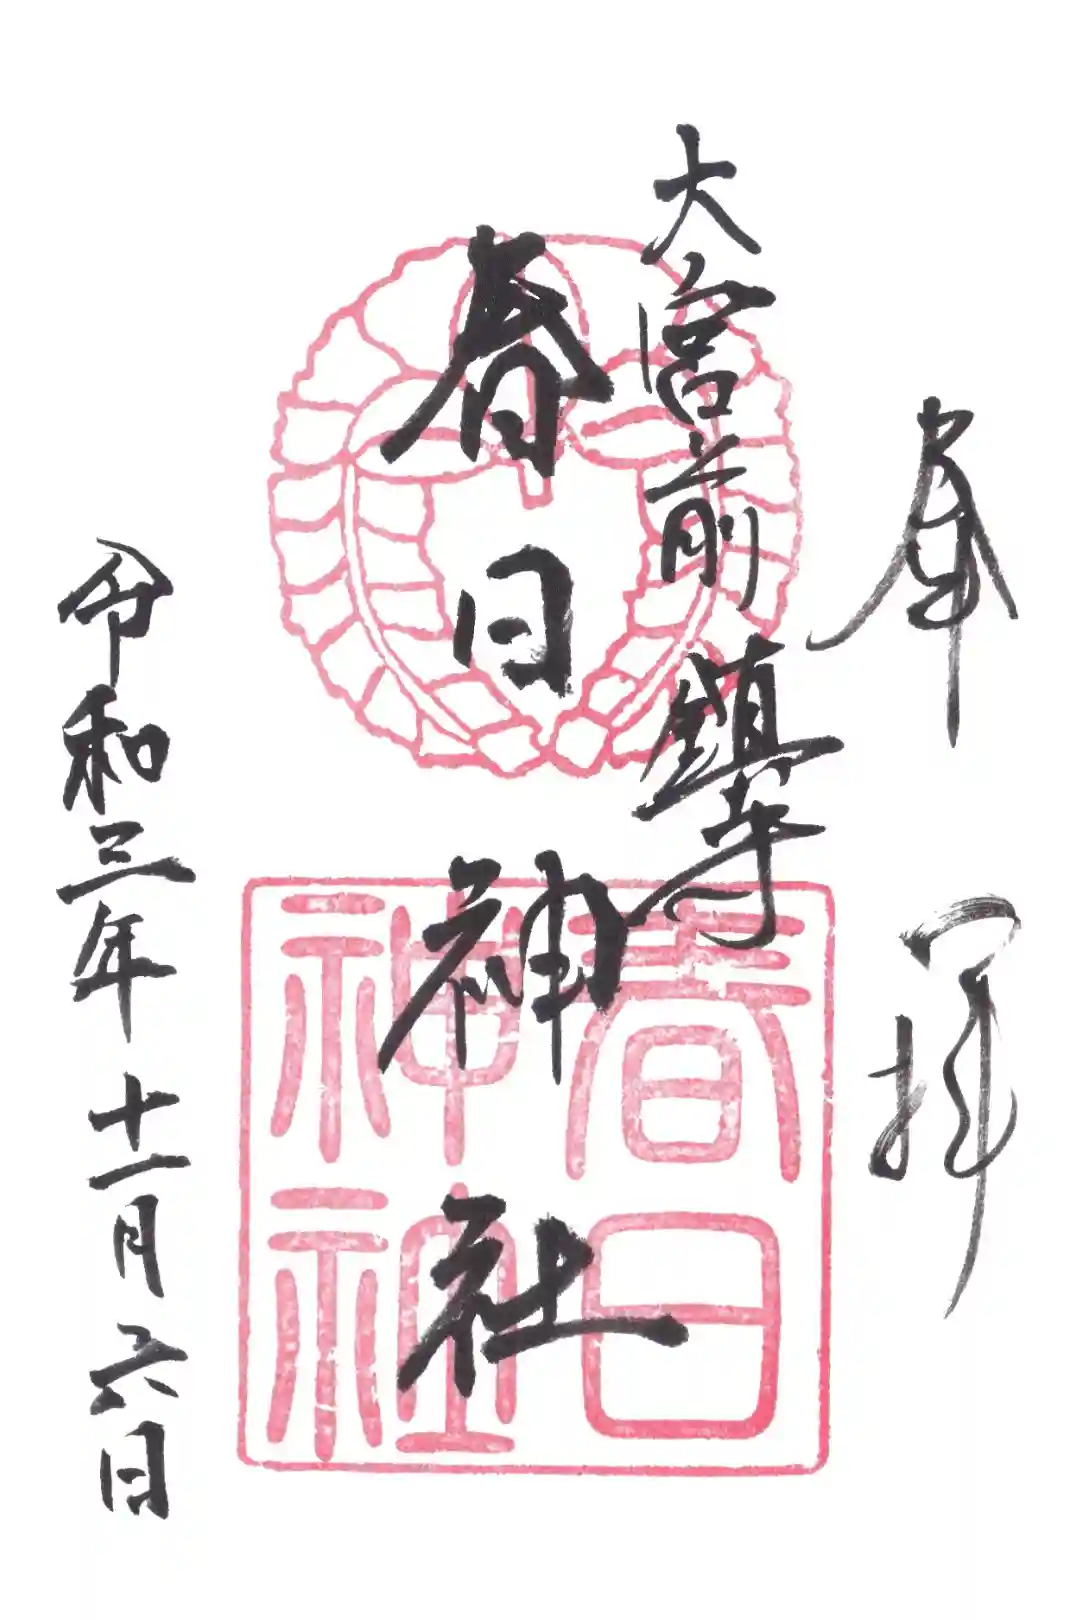 奉拝
大宮前鎮守
春日神社
春日
神社
令和三年十一月六日